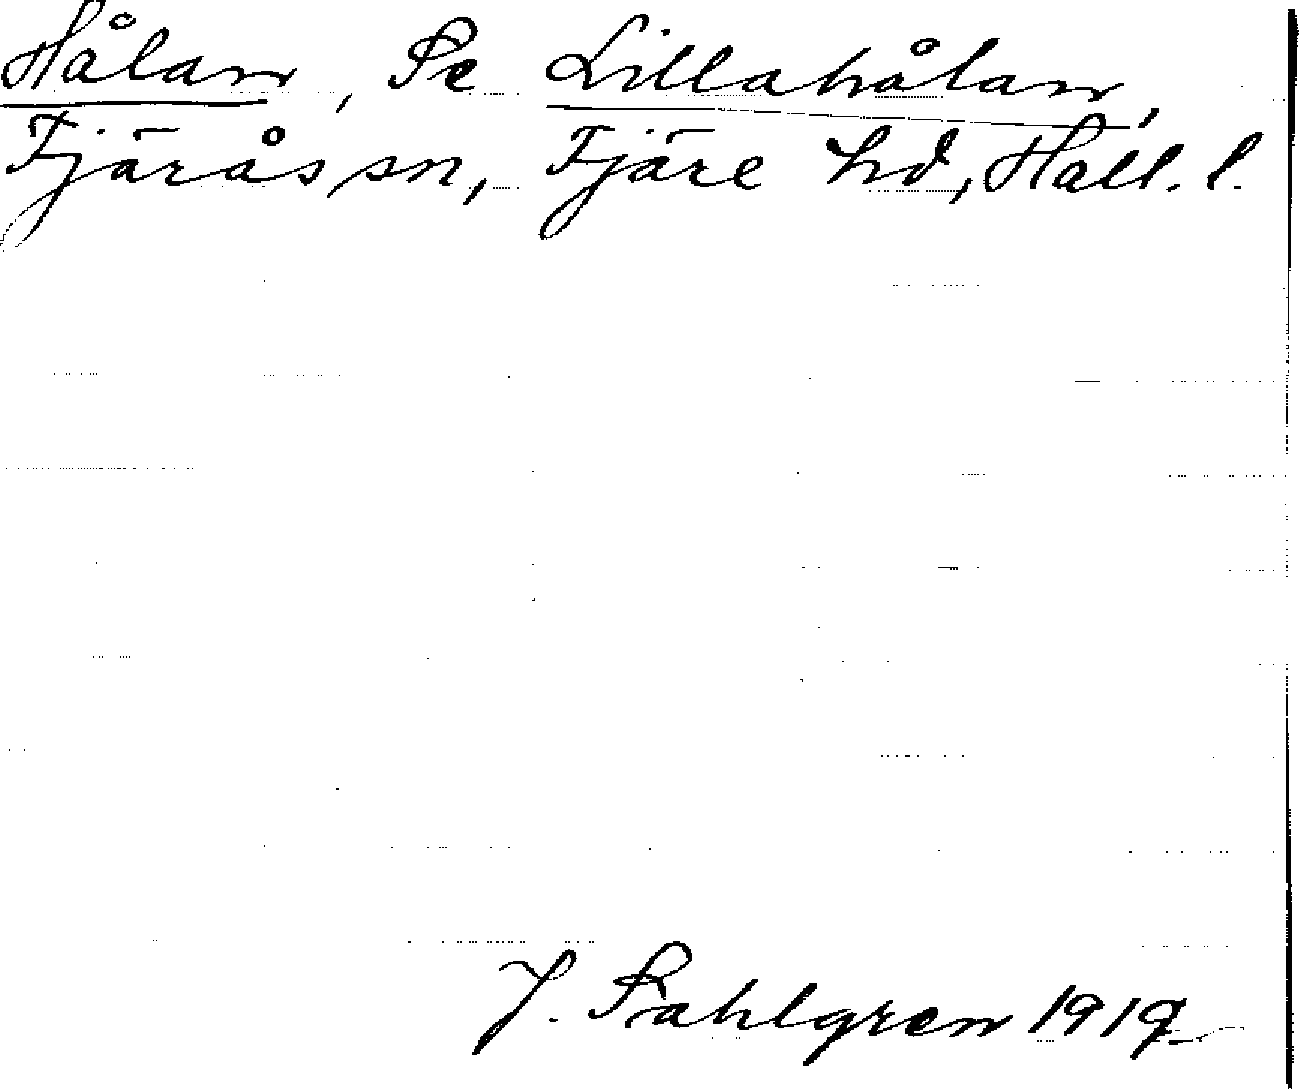 Hålan, Se Lillahålan,
Fjärås sn, Fjäre hd, Hall. l.
J. Sahlgren 1919